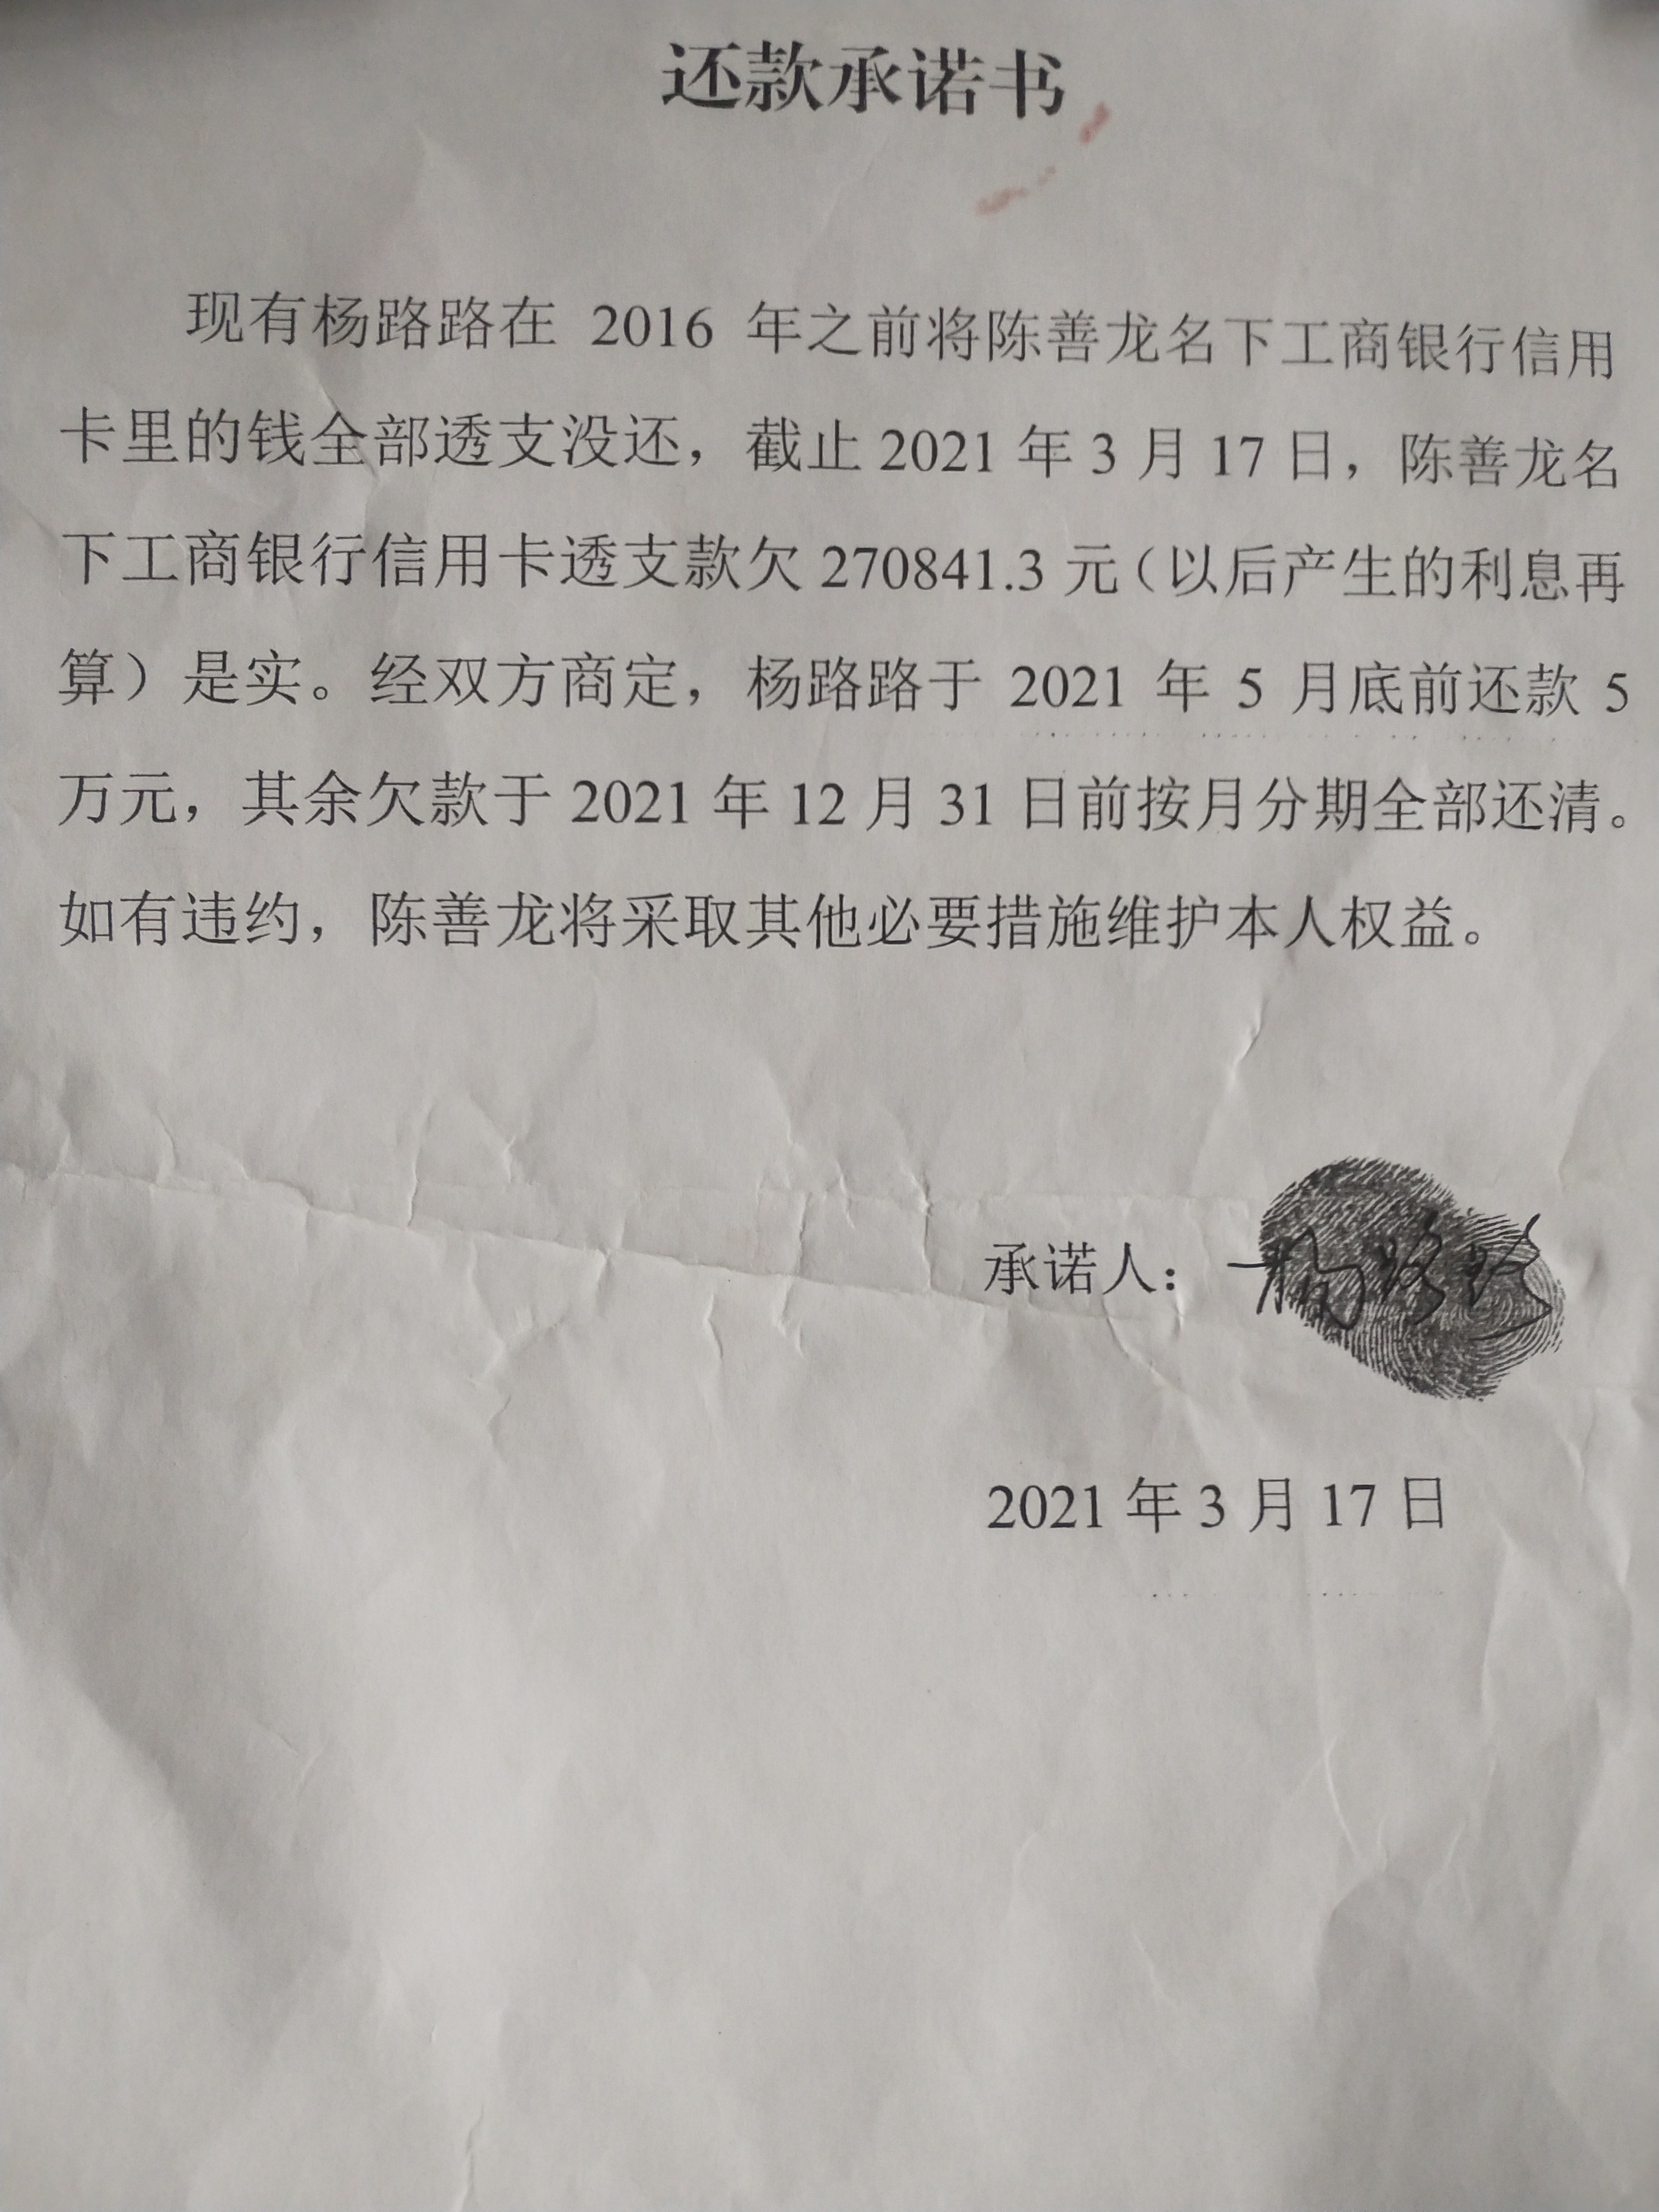 还款承诺书
现有杨路路在 2016 年之前将陈善龙名下工商银行信用
卡里的钱全部透支没还，截止 2021 年 3 月 17 日，陈善龙名
下工商银行信用卡透支款欠 270841.3 元（以后产生的利息再
算）是实。经双方商定，杨路路于 2021 年 5 月底前还款 5
万元，其余欠款于 2021 年 12 月 31 日前按月分期全部还清。
如有违约，陈善龙将采取其他必要措施维护本人权益。
承诺人：杨路路
2021 年 3 月 17 日